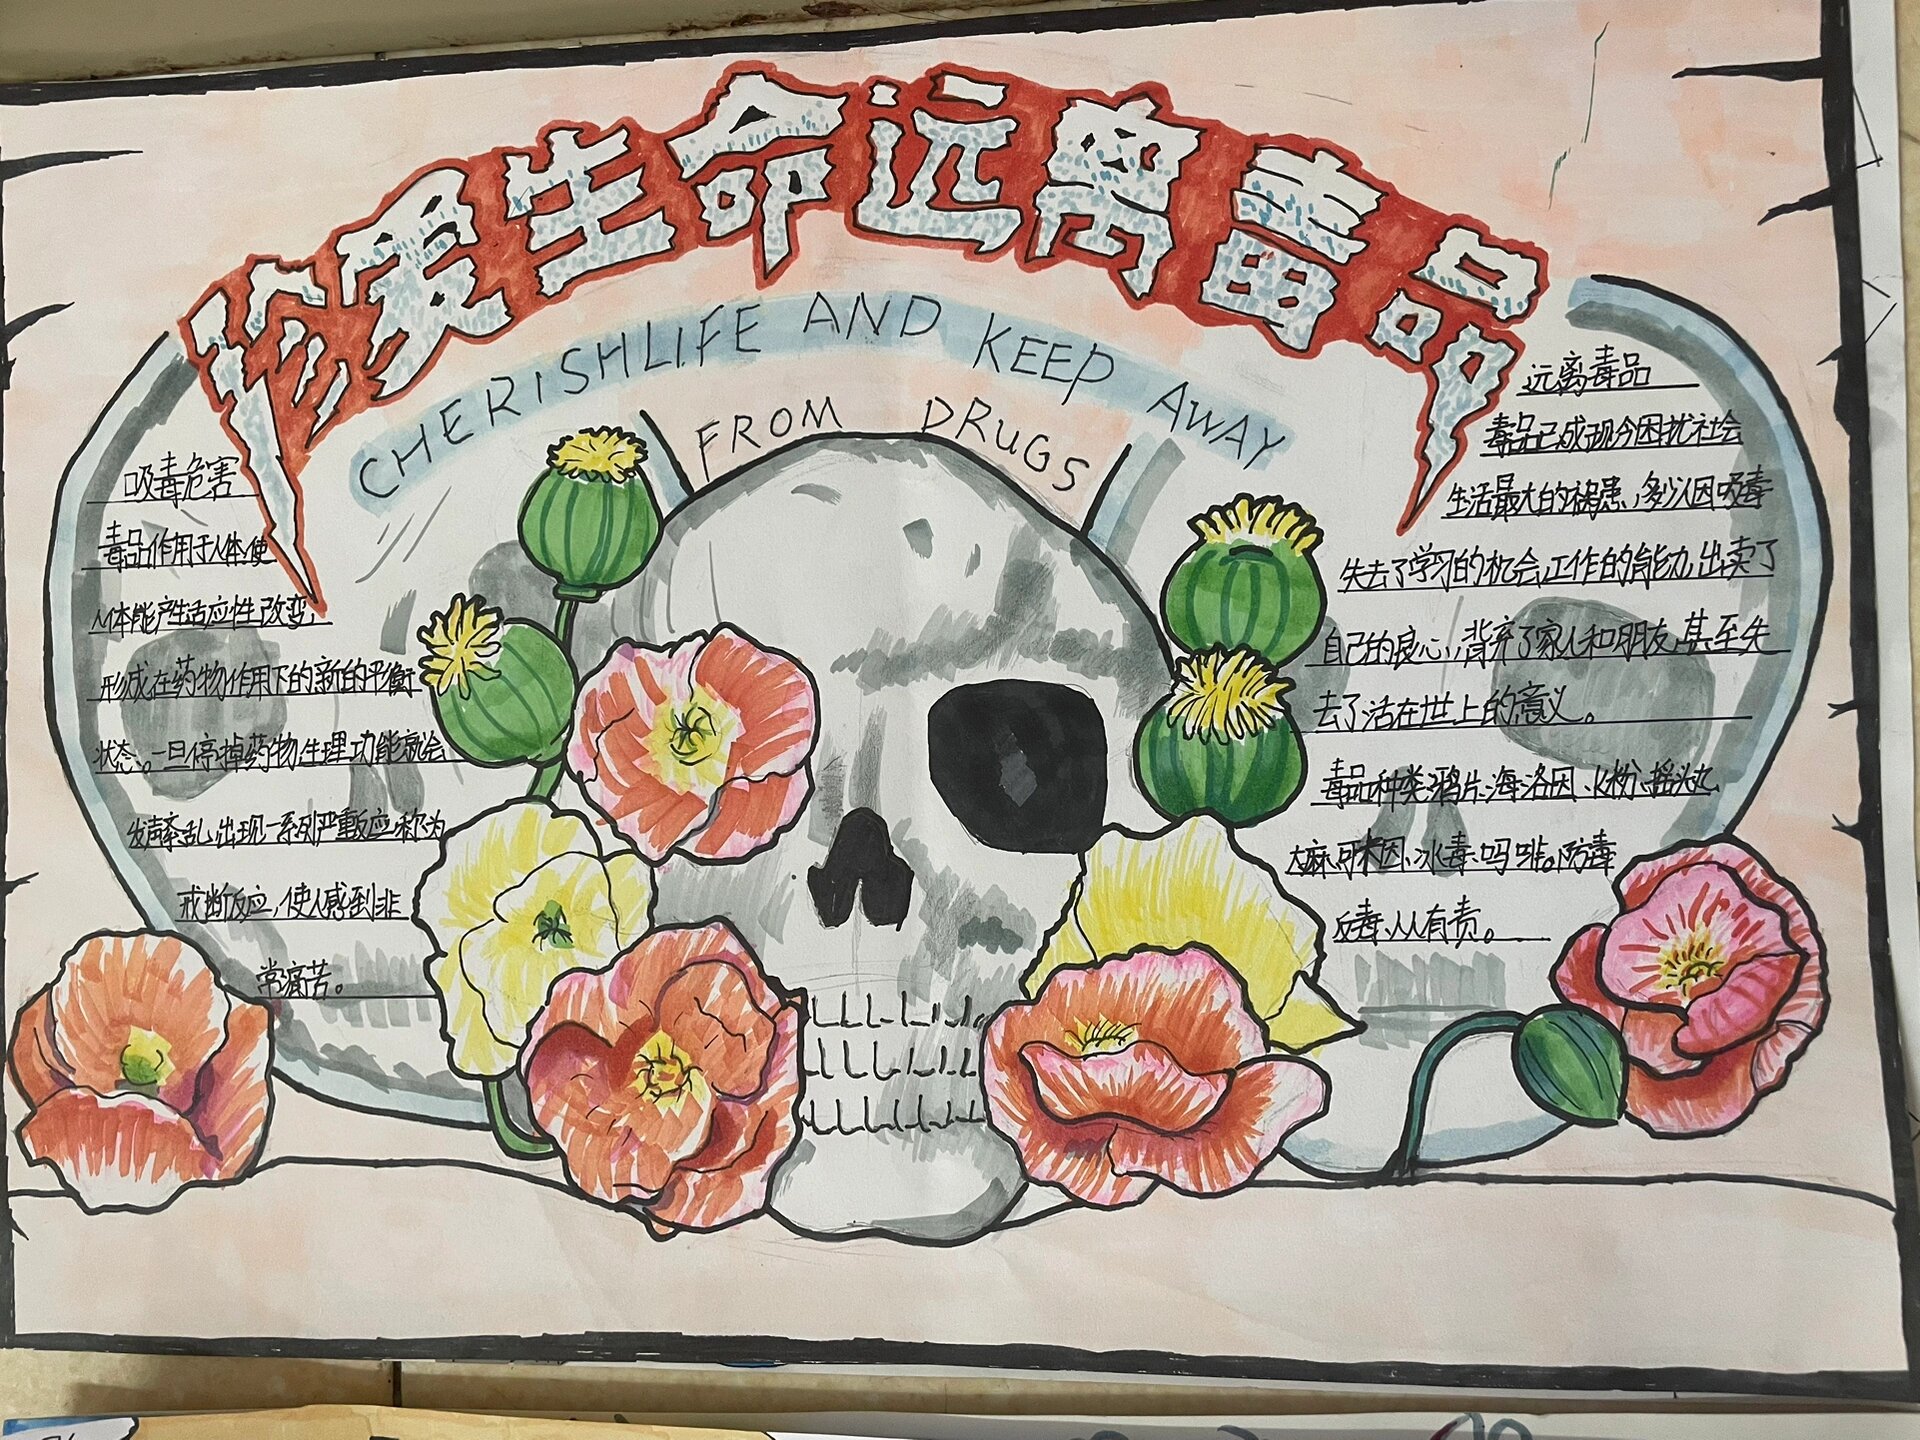 珍爱生命远离毒品
CHERISH LIFE AND KEEP AWAY
FROM DRUGS
吸毒危害
毒品作用于人体,使
人体能产生适应性改变,
形成在药物作用下的新的平衡
状态。一旦停掉药物,生理功能就会
发声紊乱,出现一系列严重反应,称为
戒断反应,使人感到非
常痛苦。
远离毒品
毒品已成现今困扰社会
生活最大的祸患,多少人因吸毒
失去了学习的机会,工作的能力,出卖了
自己的良心,背弃了家人和朋友,甚至失
去了活在世上的意义。
毒品种类:鸦片、海洛因、K粉、摇头丸、
大麻、可卡因、冰毒、吗啡。防毒
反毒、人人有责。